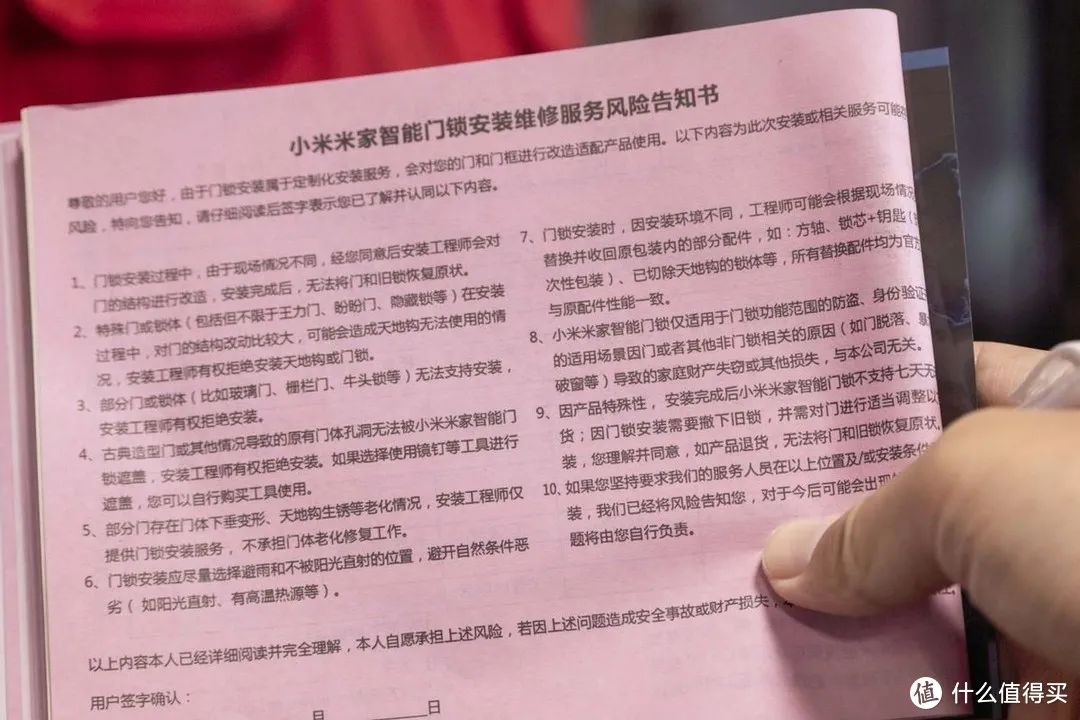 小米米家智能门锁安装维修服务风险告知书
尊敬的用户您好，由于门锁安装属于定制化安装服务，会对您的门和门框进行改造适配产品使用。以下内容为此次安装或相关服务可能
风险，特向您告知，请仔细阅读后签字表示您已了解并认同以下内容。
1、门锁安装过程中，由于现场情况不同，经您同意后安装工程师会对
门的结构进行改造，安装完成后，无法将门和旧锁恢复原状。
2、特殊门或锁体（包括但不限于王力门、盼盼门、隐藏锁等）在安装
过程中，对门的结构改动比较大，可能会造成天地钩无法使用的情
况，安装工程师有权拒绝安装天地钩或门锁。
3、部分门或锁体（比如玻璃门、栅栏门、牛头锁等）无法支持安装，
安装工程师有权拒绝安装。
4、古典造型门或其他情况导致的原有门体孔洞无法被小米米家智能门
锁遮盖，安装工程师有权拒绝安装。如果选择使用镜钉等工具进行
遮盖，您可以自行购买工具使用。
5、部分门存在门体下垂变形、天地钩生锈等老化情况，安装工程师仅
提供门锁安装服务， 不承担门体老化修复工作。
6、门锁安装应尽量选择避雨和不被阳光直射的位置，避开自然条件恶
劣（ 如阳光直射、有高温热源等）。
7、门锁安装时，因安装环境不同，工程师可能会根据现场情况
替换并收回原包装内的部分配件，如：方轴、锁芯+钥匙（
次性包装）、已切除天地钩的锁体等，所有替换配件均为官方
与原配件性能一致。
8、小米米家智能门锁仅适用于门锁功能范围的防盗、身份验证
的适用场景因门或者其他非门锁相关的原因（如门脱落、暴
破窗等）导致的家庭财产失窃或其他损失，与本公司无关。
9、因产品特殊性， 安装完成后小米米家智能门锁不支持七天无
货；因门锁安装需要撤下旧锁，并需对门进行适当调整以
装，您理解并同意，如产品退货，无法将门和旧锁恢复原状。
10、如果您坚持要求我们的服务人员在以上位置及/或安装条件
装，我们已经将风险告知您，对于今后可能会出现
题将由您自行负责。
以上内容本人已经详细阅读并完全理解，本人自愿承担上述风险，若因上述问题造成安全事故或财产损失，
用户签字确认：
月 日
值 什么值得买